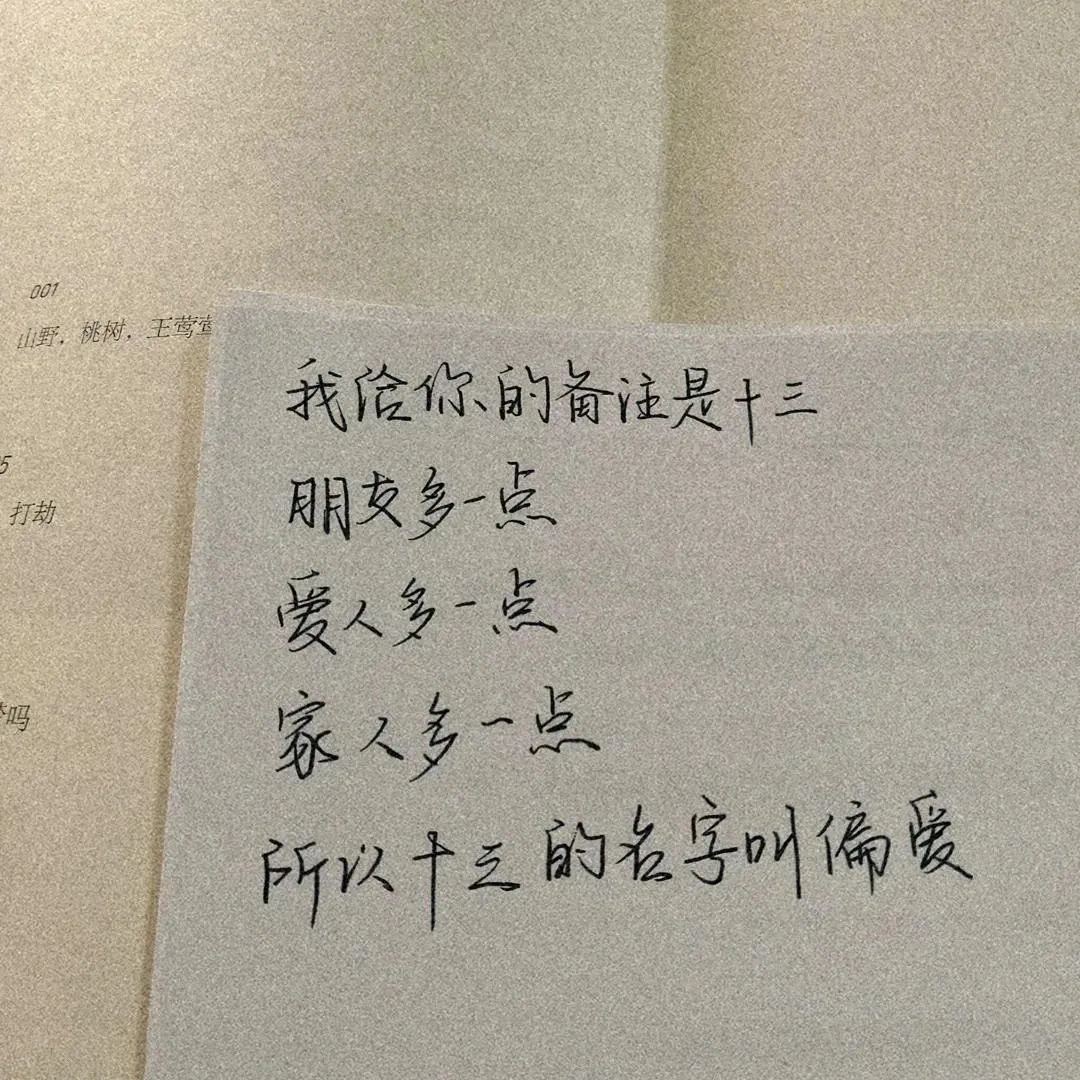 001
山野，桃树，王莺莺
5
打劫
吗
我给你的备注是十三
朋友多一点
爱人多一点
家人多一点
所以十三的名字叫偏爱